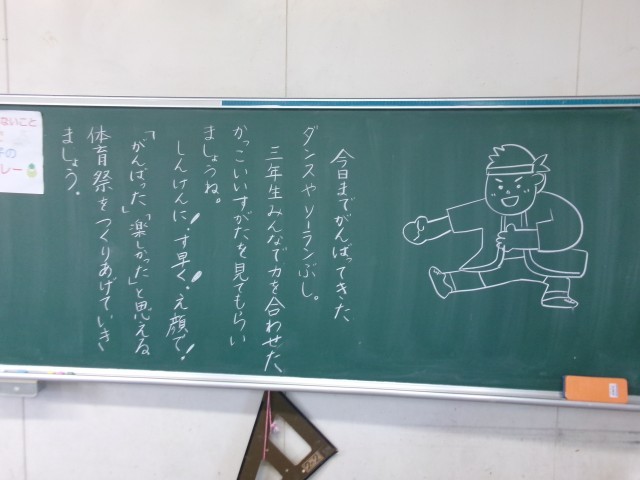 今日までがんばってきた
ダンスやソーランぶし。
三年生みんなで力を合わせた
かっこいいすがたを見てもらい
ましょうね。
しんけんに!す早く!え顔で!
「がんばった」「楽しかった」と思える
体育祭をつくりあげていき
ましょう。
ないこと
レー